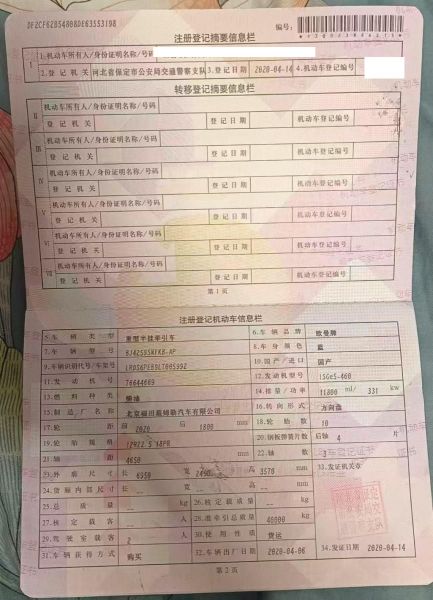 DF2CF62B54808DE63553198
编号:
注册登记摘要信息栏
I 1.机动车所有人/身份证明名称/号码
2.登记机关 河北省保定市公安局交通警察支队 3.登记日期 2020-04-14 4.机动车登记编号
转移登记摘要信息栏
II 机动车所有人/身份证明名称/号码
登记机关 登记日期 机动车登记编号
III 机动车所有人/身份证明名称/号码
登记机关 登记日期 机动车登记编号
IV 机动车所有人/身份证明名称/号码
登记机关 登记日期 机动车登记编号
V 机动车所有人/身份证明名称/号码
登记机关 登记日期 机动车登记编号
VI 机动车所有人/身份证明名称/号码
登记机关 登记日期 机动车登记编号
VII 机动车所有人/身份证明名称/号码
登记机关 登记日期 机动车登记编号
第1页
注册登记机动车信息栏
5.车辆类型 重型半挂牵引车 6.车辆品牌 欧曼牌
7.车辆型号 8.车身颜色 蓝
9.车辆识别代号/车架号 10.国产/进口 国产
11.发动机号 76644669 12.发动机型号 ISGe5-460
13.燃料种类 柴油 14.排量/功率 11800 ml/ 331 kw
15.制造厂名称 北京福田戴姆勒汽车有限公司 16.转向形式 方向盘
17.轮距 前 2020 后 1800 mm 18.轮胎数 10
19.轮胎规格 12R22.5 18PR 20.钢板弹簧片数 后轴 4 片
21.轴距 4650 mm 22.轴数 3
23.外廓尺寸 长 6950 宽 2490 高 3570 mm 33.发证机关章
24.货厢内部尺寸 长 -- 宽 -- 高 -- mm
25.总质量 -- kg 26.核定载质量 -- kg
27.核定载客 -- 人 28.准牵引总质量 40000 kg
29.驾驶室载客 2 人 30.使用性质 货运
31.车辆获得方式 购买 32.车辆出厂日期 2020-04-06 34.发证日期 2020-04-14
第2页